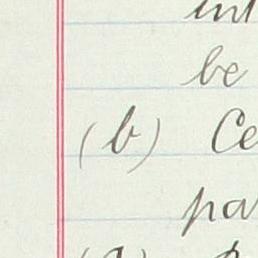 int
be
(b) Ce
pa